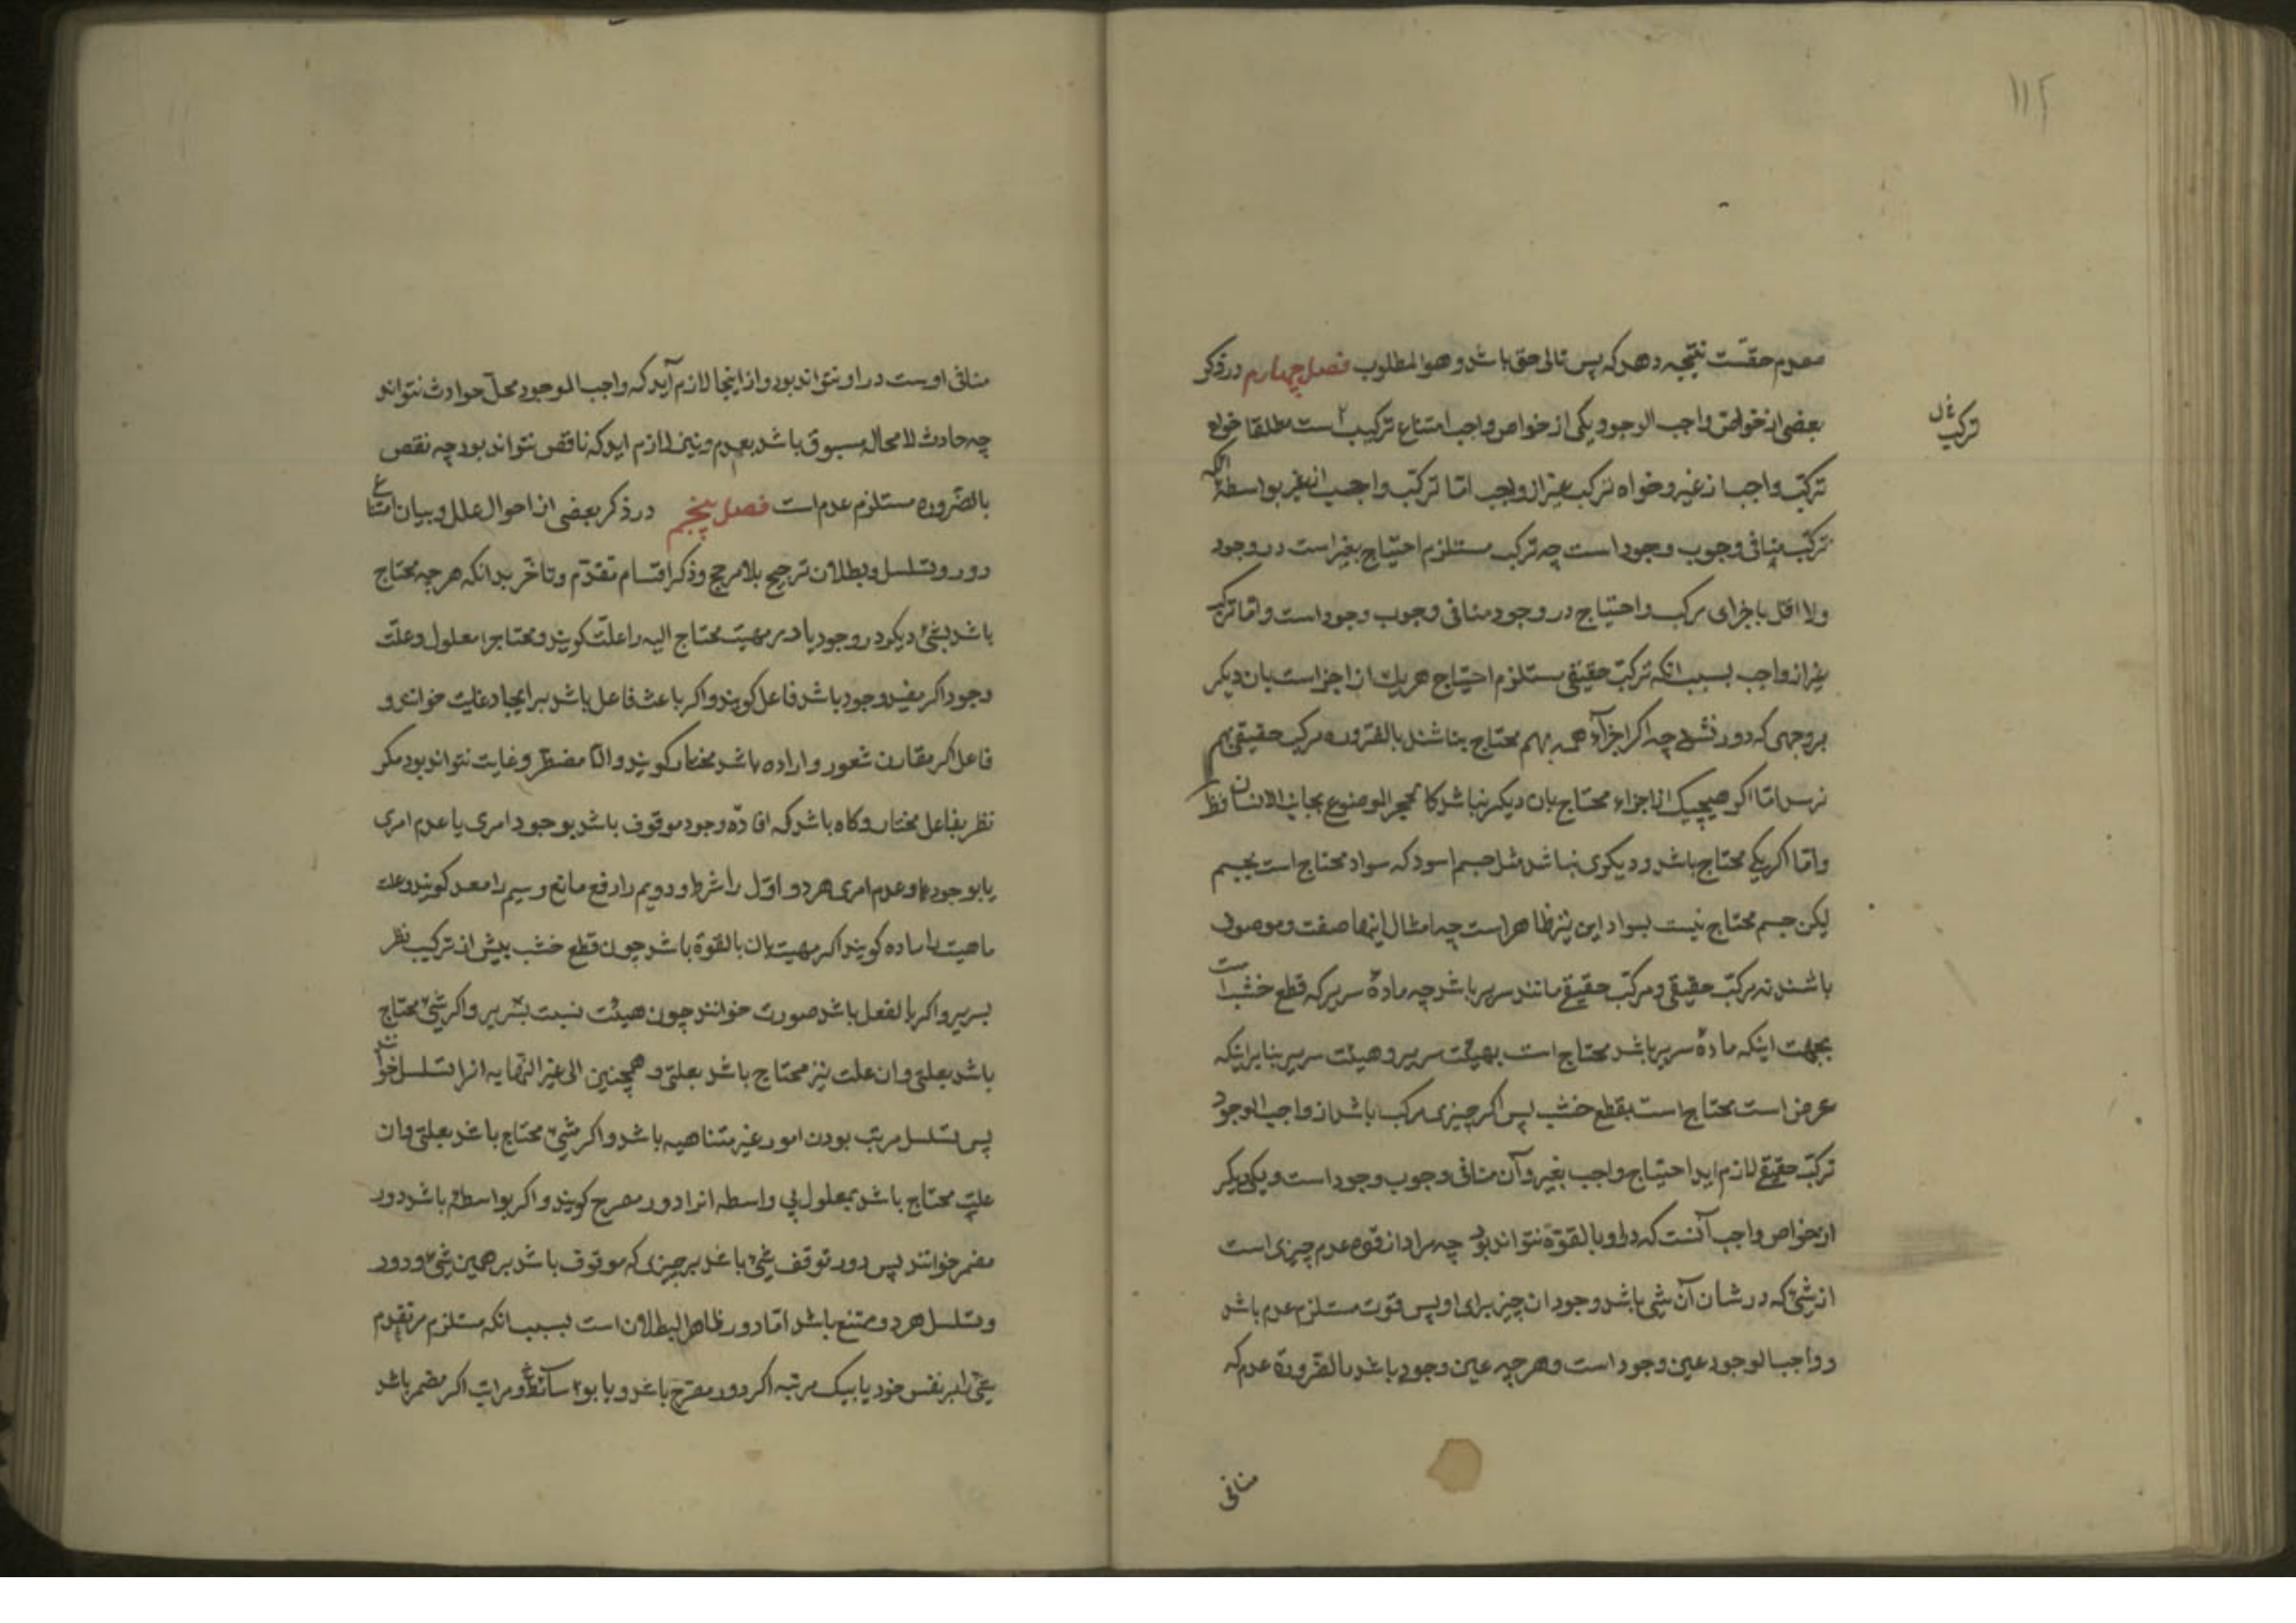 ۱۱۲
مقدم حقست نتیجه دهد که پس تالی حق باشد و هو المطلوب فصل چهارم در ذکر
بعضی از خواص واجب الوجود و یکی از خواص واجب امتناع ترکیب است مطلقا خواه
ترکب
ترکب واجب از غیر و خواه ترکب غیر از واجب اما ترکب واجب از غیر بواسطه آنکه
ترکب منافی وجوب وجود است چه ترکب مستلزم احتیاج بغیر است در وجود
ولا اقل باجزای مرکب و احتیاج در وجود منافی وجوب وجود است و اما ترکب
غیر از واجب بسبب انکه ترکب حقیقی مستلزم احتیاج هر یک از اجزاست بان دیکر
بر وجهی که دور نشود چه اکر اجزاء همه بهم محتاج نباشند بالضروره مرکب حقیقی بهم
نرسد اما اکر هیچیک از اجزاء محتاج بان دیکر نباشد کالحجر الموضوع بجانب الانسان فظ
و اما اکر یکی محتاج باشد و دیکری نباشد مثل جسم اسود که سواد محتاج است بجسم
لیکن جسم محتاج نیست بسواد این نیز ظاهر است چه امثال اینها صفت و موصوف
باشند نه مرکب حقیقی و مرکب حقیقی مانند سریر باشد چه ماده سریر که قطع خشب است
بجهت اینکه ماده سریر باشد محتاج است بهیئت سریر و هیئت سریر بنابر اینکه
عرض است محتاج است بقطع خشب پس اکر چیزی مرکب باشد از واجب الوجود
ترکب حقیقی لازم اید احتیاج واجب بغیر و آن منافی وجوب وجود است و یکی دیکر
از خواص واجب آنست که در او بالقوة نتواند بود چه مراد از قوه عدم چیزی است
از شئ که در شان آن شی باشد وجود ان چیز برای او پس قوت مستلزم عدم باشد
و واجب الوجود عین وجود است و هر چه عین وجود باشد بالضرورة عدم که
منافی
منافی اوست در او نتواند بود و از اینجا لازم آید که واجب الوجود محل حوادث نتواند
چه حادث لا محاله مسبوق باشد بعدم و نیز لازم اید که ناقص نتواند بود چه نقص
بالضروره مستلزم عدم است فصل پنجم در ذکر بعضی از احوال علل و بیان امتناع
دور و تسلسل و بطلان ترجیح بلا مرجح و ذکر اقسام تقدم و تاخر بدانکه هر چه محتاج
باشد بشئ دیکر در وجود یا در مهیت محتاج الیه را علت کویند و محتاج را معلول و علت
وجود اکر مفید وجود باشد فاعل کویند و اکر باعث فاعل باشد بر ایجاد غایت خوانند و
فاعل اکر مقارن شعور و اراده باشد مختار کویند و الا مضطر و غایت نتواند بود مکر
نظر بفاعل مختار و کاه باشد که افاده وجود موقوف باشد بوجود امری یا عدم امری
یا بوجود و عدم امری هر دو اول را شرط و دویم را رفع مانع و سیم را معد کویند و علت
ماهیت را ماده کویند اکر مهیت بان بالقوة باشد چون قطع خشب پیش از ترکیب نظر
بسریر و اکر بالفعل باشد صورت خوانند چون هیئت نسبت بسریر و اکر شئ محتاج
باشد بعلتی و ان علت نیز محتاج باشد بعلتی و همچنین الی غیر النهایه انرا تسلسل خوانند
پس تسلسل مرتب بودن امور غیر متناهیه باشد و اکر شئ محتاج باشد بعلتی و ان
علت محتاج باشد بمعلول بی واسطه انرا دور مصرح کویند و اکر بواسطه باشد دور
مضمر خوانند پس دور توقف شئ باشد بر چیزی که موقوف باشد بر همین شئ و دور
و تسلسل هر دو ممتنع باشد اما دور ظاهر البطلان است بسبب انکه مستلزم تقدم
شئ بر نفس خود یا بیک مرتبه اکر دور مصرح باشد و یا مراتب اکر مضمر باشد